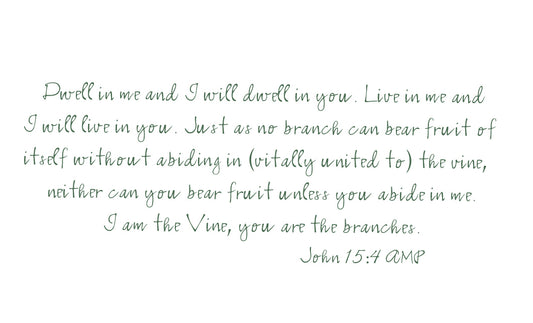 Dwell in me and I will dwell in you. Live in me and
I will live in you. Just as no branch can bear fruit of
itself without abiding in (vitally united to) the vine,
neither can you bear fruit unless you abide in me.
I am the Vine, you are the branches.
John 15:4 AMP